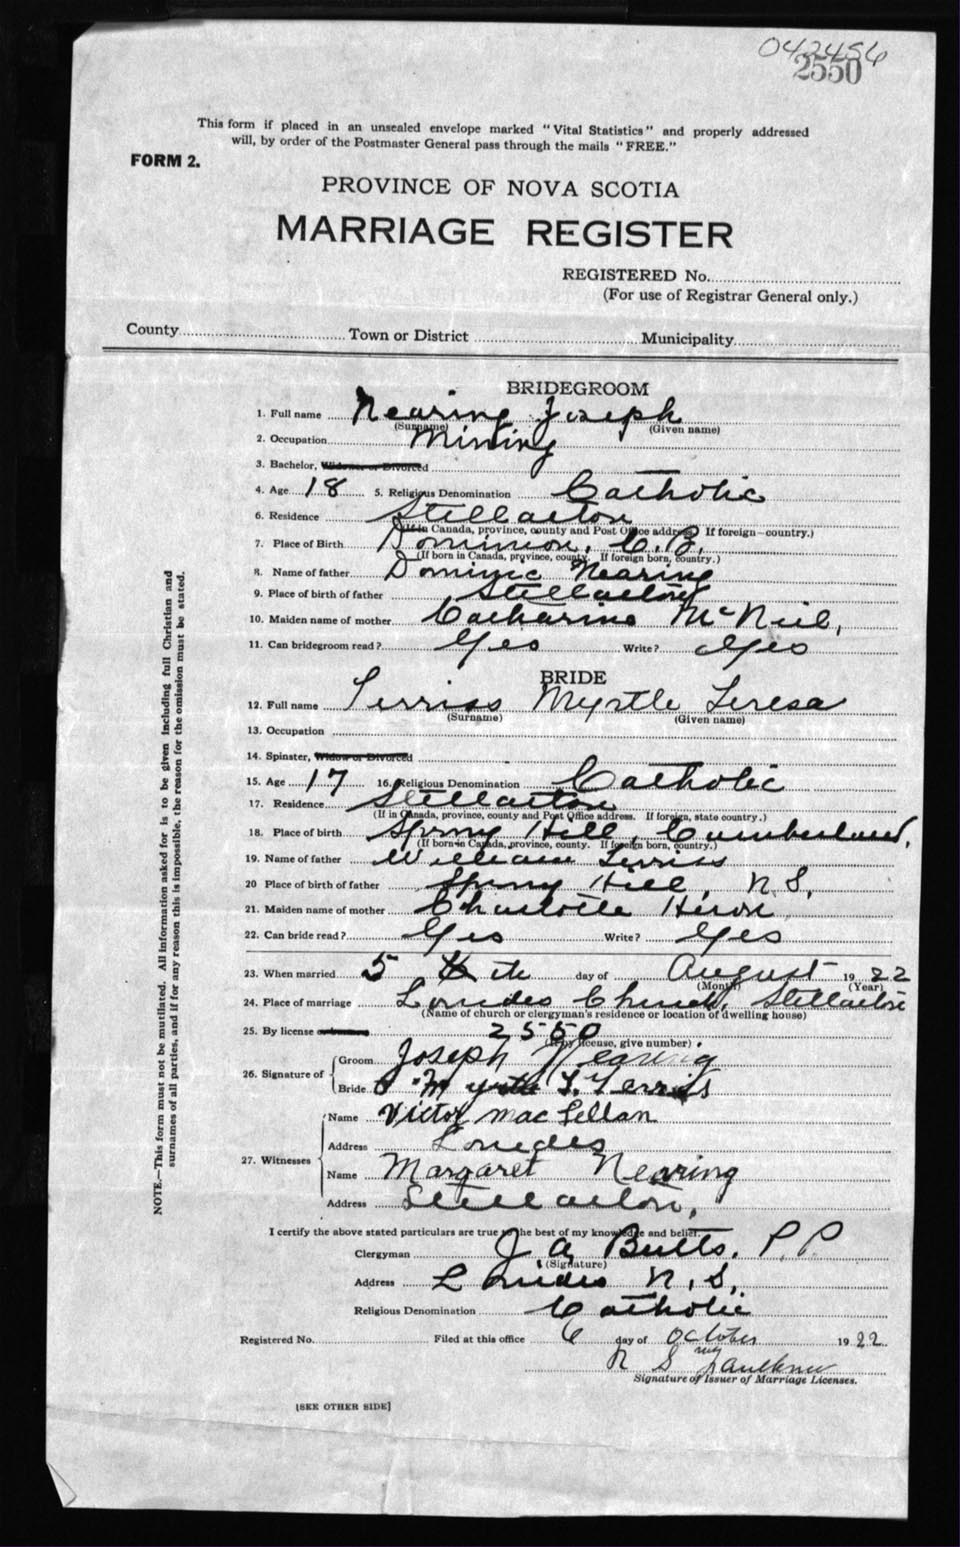 042456
2550
This form if placed in an unsealed envelope marked "Vital Statistics" and properly addressed
will, by order of the Postmaster General pass through the mails "FREE."
FORM 2.
PROVINCE OF NOVA SCOTIA
MARRIAGE REGISTER
REGISTERED No.
(For use of Registrar General only.)
County Town or District Municipality
BRIDEGROOM
1. Full name Nearing Joseph
(Surname) (Given name)
2. Occupation Mining
3. Bachelor, Widower or Divorced
4. Age 18 5. Religious Denomination Catholic
6. Residence Stellarton
(If in Canada, province, county and Post Office address. If foreign—country.)
7. Place of Birth Dominion, C.B.
(If born in Canada, province, county. If foreign born, country.)
8. Name of father Dominic Nearing
9. Place of birth of father Stellarton
10. Maiden name of mother Catharine McNeil,
11. Can bridegroom read? Yes Write? Yes
BRIDE
12. Full name Ferriss Myrtle Teresa
(Surname) (Given name)
13. Occupation
14. Spinster, Widow or Divorced
15. Age 17 16. Religious Denomination Catholic
17. Residence Stellarton
(If in Canada, province, county and Post Office address. If foreign, state country.)
18. Place of birth Spring Hill, Cumberland,
(If born in Canada, province, county. If foreign born, country.)
19. Name of father William Ferriss
20 Place of birth of father Spring Hill, N.S.
21. Maiden name of mother Charlotte
22. Can bride read? Yes Write? Yes
23. When married 5 th day of August 1922
(Month) (Year)
24. Place of marriage Lourdes Church, Stellarton
(Name of church or clergyman's residence or location of dwelling house)
25. By license 2550
(If by license, give number)
26. Signature of Groom Joseph Nearing
Bride Myrtle T. Ferriss
27. Witnesses Name Victor MacLellan
Address Lourdes
Name Margaret Nearing
Address Stellarton,
I certify the above stated particulars are true to the best of my knowledge and belief.
Clergyman J A Butts. P.P.
(Signature)
Address Lourdes N.S.
Religious Denomination Catholic
Registered No. Filed at this office 6 day of October 1922
R S Faulkner
Signature of Issuer of Marriage Licenses.
[SEE OTHER SIDE]
NOTE.—This form must not be mutilated. All information asked for is to be given including full Christian and
surnames of all parties, and if for any reason this is impossible, the reason for the omission must be stated.